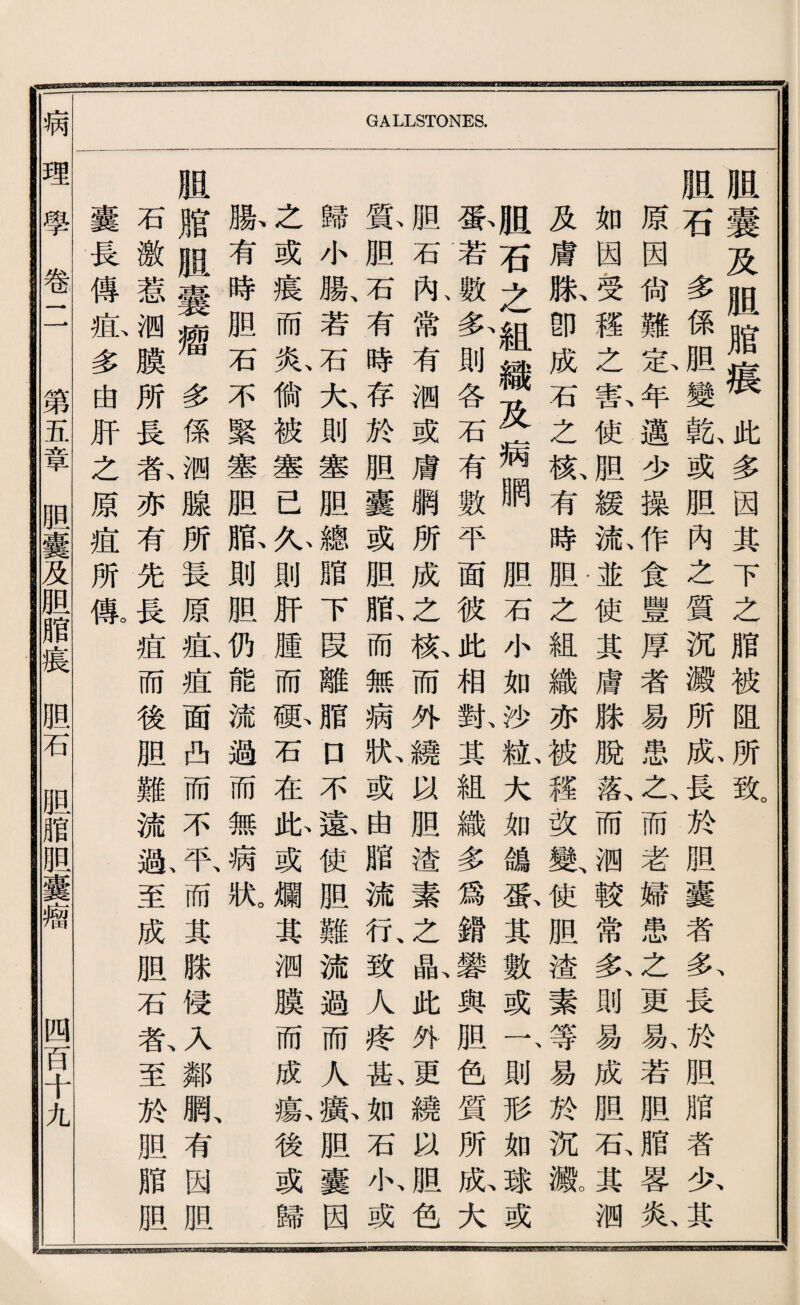 GALLSTONES.
胆囊及胆脂痕 此多因其下之脂被阻所致。
胆石 多係胆變乾、或胆內之質沉澱所成、長於胆囊者多、長於胆脂者少、其
原因尙難定、年邁少操作食豐厚者易患之、而老婦患之更易、若胆脂畧炎、
如因受穜之害、使胆緩流、並使其膚脒脫落、而泗較常多、則易成胆石、其泗
及膚脒、卽成石之核、有時胆之組織亦被穜改變、使胆渣素等易於沉澱。
胆石之組織及病脶 胆石小如沙粒、大如鴿蛋、其數或一、則形如球或
蛋、若數多、則各石有數平面彼此相對、其組織多爲鎙礬與胆色質所成、大
胆石內、常有泗或膚脶所成之核、而外繞以胆渣素之晶、此外更繞以胆色
質、胆石有時存於胆囊或胆脂、而無病狀、或由脂流行、致人疼甚、如石小、或
歸小腸、若石大、則塞胆總脂下叚離脂口不遠、使胆難流過而人癀、胆囊因
之或痕而炎、倘被塞已久、則肝腫而硬、石在此、或爛其泗膜而成瘍、後或歸
腸、有時胆石不緊塞胆脂、則胆仍能流過而無病狀。
胆脂胆囊瘤 多係泗腺所長原疽、疽面凸而不平、而其脒侵入鄰脶、有因胆
石激惹泗膜所長者、亦有先長疽而後胆難流過、至成胆石者、至於胆脂胆
囊長傳疽、多由肝之原疽所傳。
病理學 卷二 第五章 胆囊及胆脂痕 胆石 胆脂胆囊瘤 四百十九